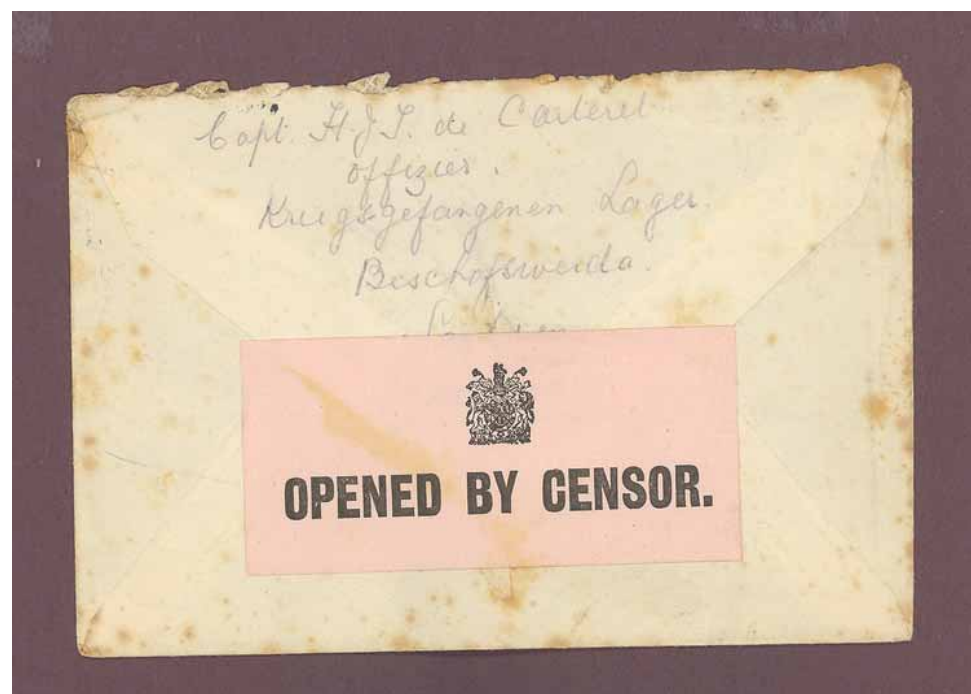 Capt. H.J.T. de Carteret
Offizier.
Kriegsgefangenen Lager.
Beschofswerda.
OPENED BY CENSOR.